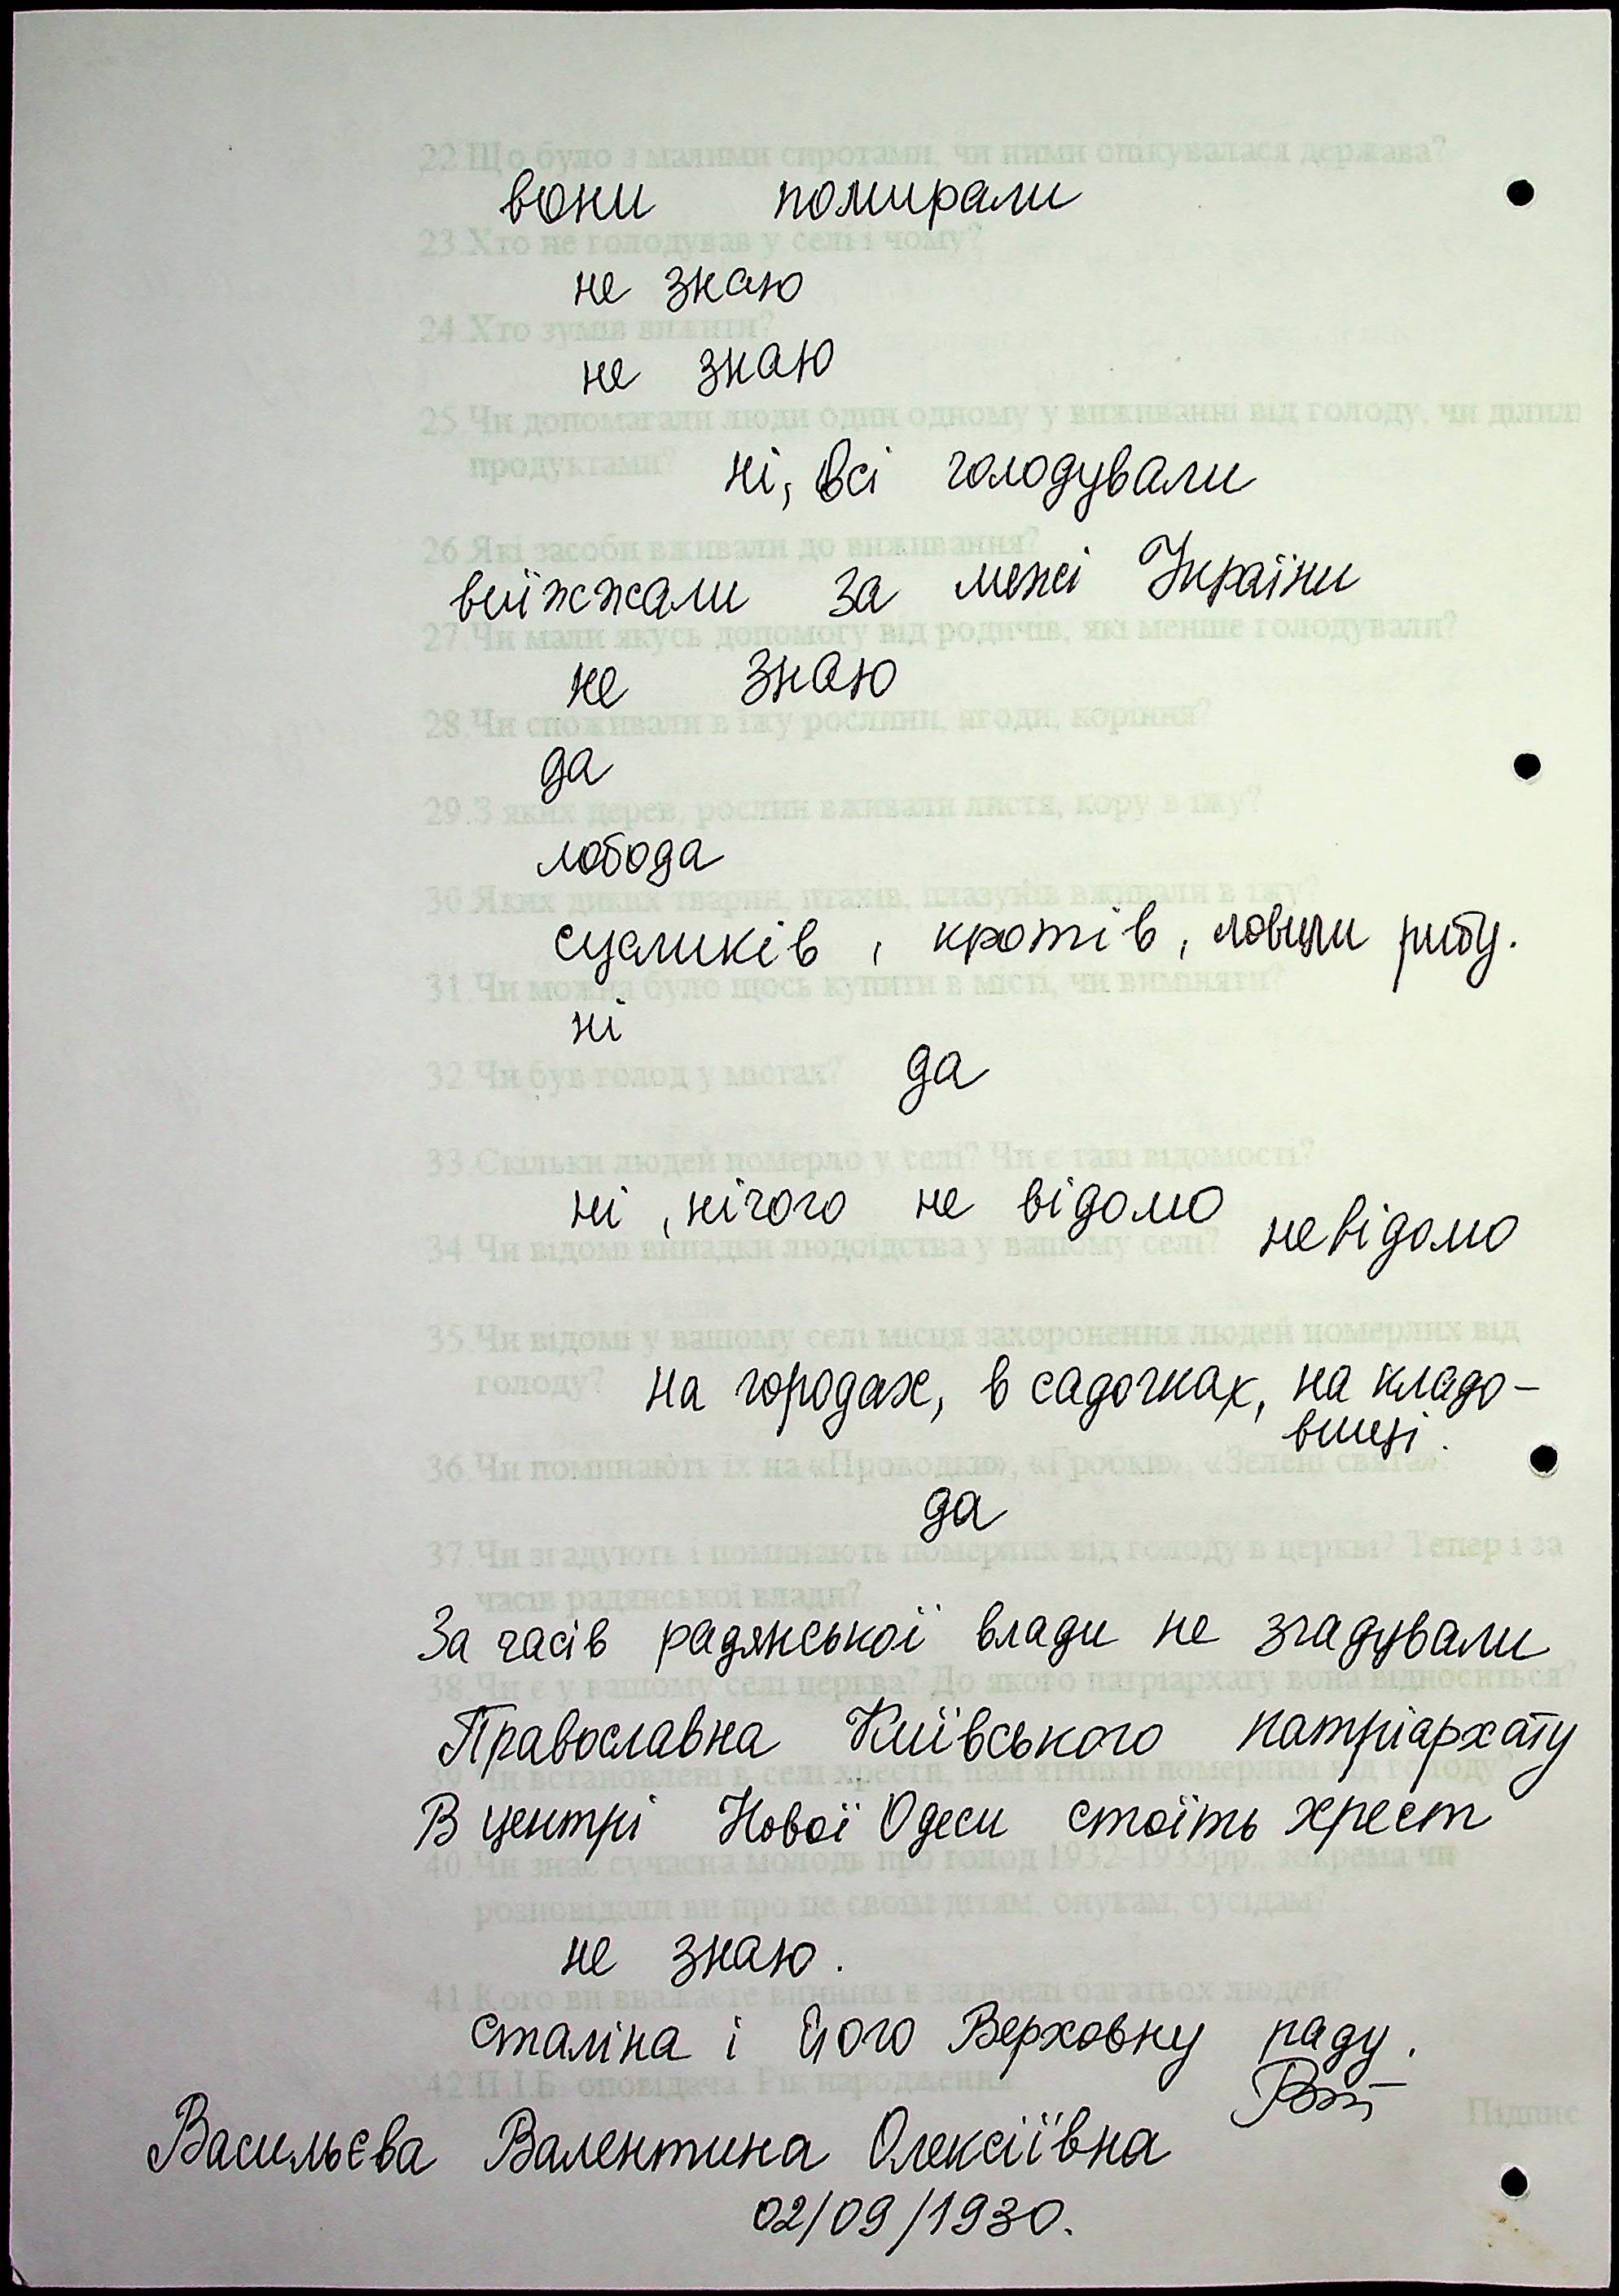 22.Що було з малими сиротами, чи ними опікувалася держава?
вони помирали
23.Хто не голодував у селі і чому?
не знаю
24.Хто зумів вижити?
не знаю
25.Чи допомагали люди один одному у виживанні від голоду, чи ділил
продуктами? ні, всі голодували
26.Які засоби вживали до виживання?
виїжжали за межі України
27.Чи мали якусь допомогу від родичів, які менше голодували?
не знаю
28.Чи споживали в їжу рослини, ягоди, коріння?
да
29.З яких дерев, рослин вживали листя, кору в їжу?
лобода
30.Яких диких тварин, птахів, плазунів вживали в їжу?
сусликів, кротів, ловили рибу.
31.Чи можна було щось купити в місті, чи виміняти?
ні
32.Чи був голод у містах? да
33.Скільки людей померло у селі? Чи є такі відомості?
ні, нічого не відомо
34.Чи відомі випадки людоїдства у вашому селі? невідомо
35.Чи відомі у вашому селі місця захоронення людей померлих від
голоду? на городах, в садочках, на кладо-
вищі.
36.Чи поминають їх на «Проводи», «Гробки», «Зелені свята».
да
37.Чи згадують і поминають померлих від голоду в церкві? Тепер і за
часів радянської влади?
За часів радянської влади не згадували
38.Чи є у вашому селі церква? До якого патріархату вона відноситься?
Православна Київського патріархату
39.Чи встановлені в селі хрести, пам'ятники померлим від голоду?
В центрі Нової Одеси стоїть хрест
40.Чи знає сучасна молодь про голод 1932-1933рр., зокрема чи
розповідали ви про це своїм дітям, онукам, сусідам?
не знаю.
41.Кого ви вважаєте винним в загибелі багатьох людей?
Сталіна і його Верховну раду.
42.П.І.Б. оповідача. Рік народження
Підпис
Васильєва Валентина Олексіївна
02/09/1930.